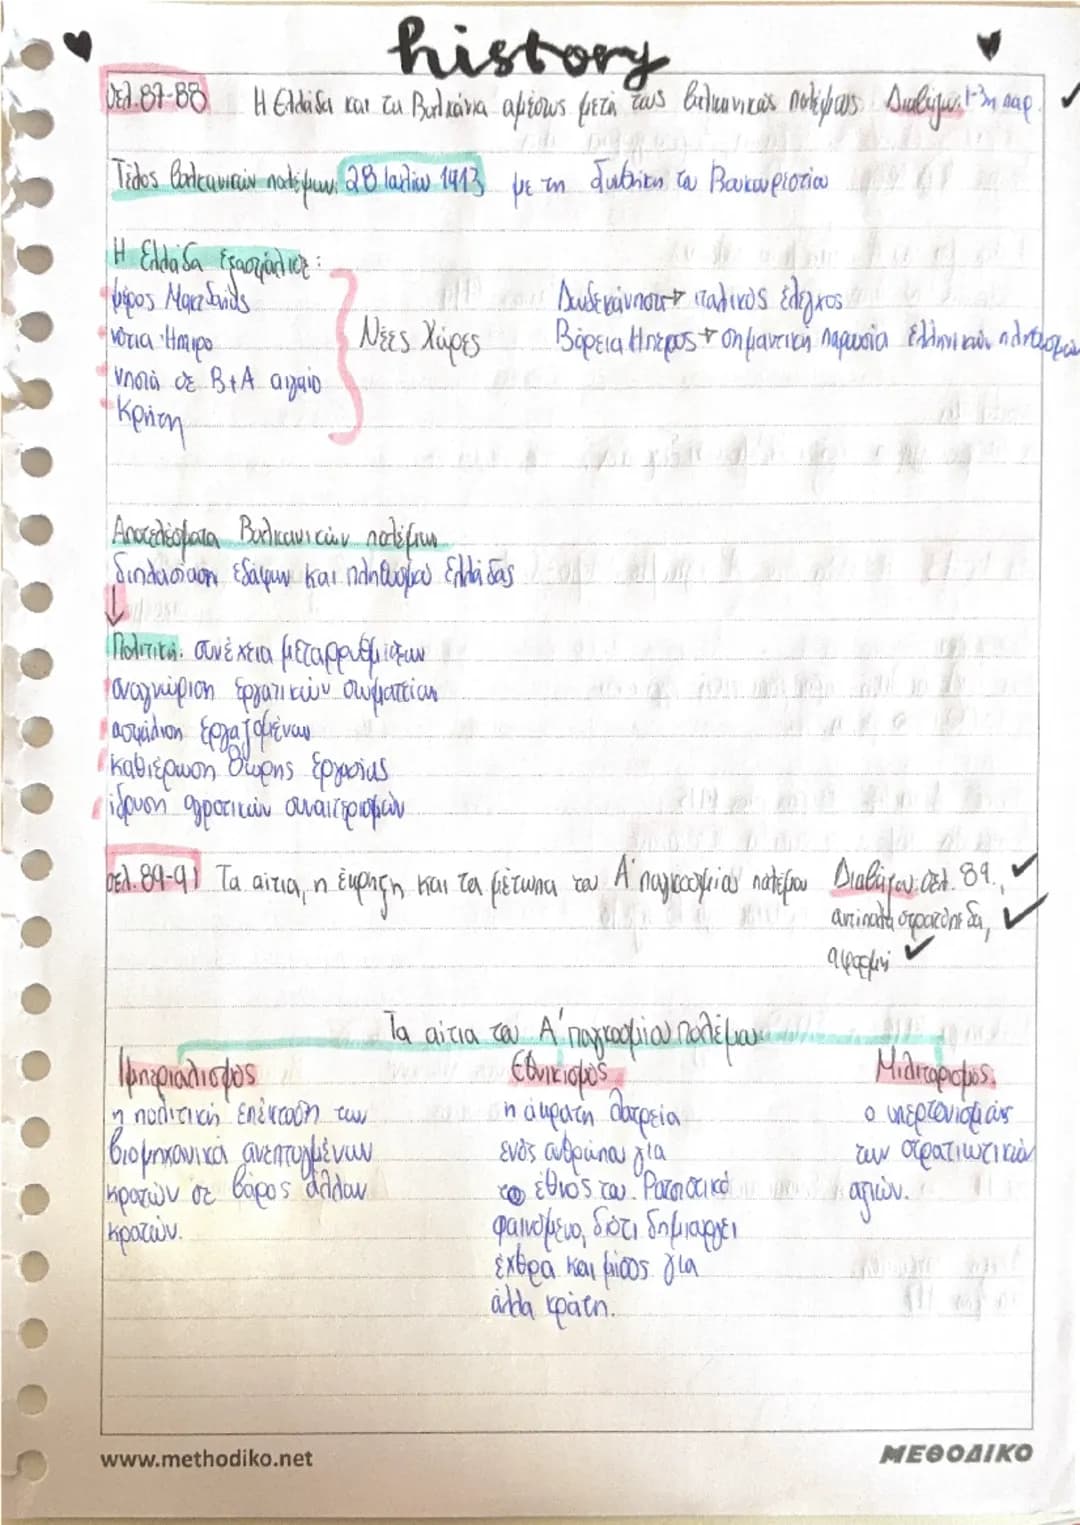 history
σελ.87-88 Η Ελλάδα και τα Βαλκάνια αμέσως μετά τους βαλκανικούς πολέμους Διαβάζω: 1-3η παρ.
Τέλος βαλκανικών πολέμων: 28 Ιουλίου 1913 με τη Συνθήκη του Βουκουρεστίου
Η Ελλάδα εξασφάλισε:
μέρος Μακεδονίας
νότια Ήπειρο
νησιά σε Β+Α αιγαίο
Κρήτη
Νέες Χώρες
Δωδεκάνησα → ιταλικός έλεγχος
Βόρεια Ήπειρος → σημαντική παρουσία ελληνικών πληθυσμών
Αποτελέσματα Βαλκανικών πολέμων
διπλασίαση εδάφων και πληθυσμού Ελλάδας
Πολιτική: συνέχεια μεταρρυθμίσεων
αναγνώριση εργατικών σωματείων
ασφάλιση εργαζομένων
καθιέρωση 8ωρης εργασίας
ίδρυση αγροτικών συναιτερισμών
σελ.89-91 Τα αίτια, η έκρηξη και τα μέτωπα του Α' παγκοσμίου πολέμου Διαβάζω: σελ. 89.,
αντίπαλα στρατόπεδα,
αφορμή
Τα αίτια του Α' παγκοσμίου πολέμου
Ιμπεριαλισμός
η πολιτική επέκταση των
βιομηχανικά ανεπτυγμένων
κρατών σε βάρος άλλων
κρατών.
Εθνικισμός
η άκρατη λατρεία
ενός ανθρώπου για
το έθνος του. Ρατσιστικό
φαινόμενο, διότι δημιουργεί
έχθρα και μίσος για
άλλα κράτη.
Μιλιταρισμός.
ο υπερτονισμός
των στρατιωτικών
αξιών.
www.methodiko.net
ΜΕΘΟΔΙΚΟ